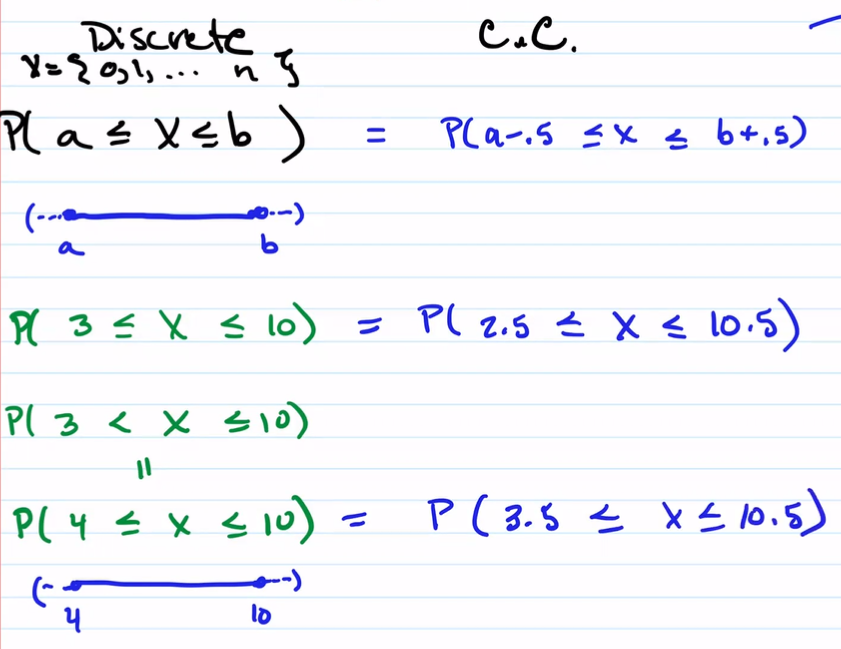 Discrete C.C.
X = { 0,1, ... n }
P( a ≤ X ≤ b ) = P(a-.5 ≤ x ≤ b+.5)
(---•———•---)
a b
P( 3 ≤ X ≤ 10) = P( 2.5 ≤ X ≤ 10.5)
P( 3 < X ≤ 10)
=
P( 4 ≤ x ≤ 10) = P ( 3.5 ≤ x ≤ 10.5)
(-•———•--)
4 10